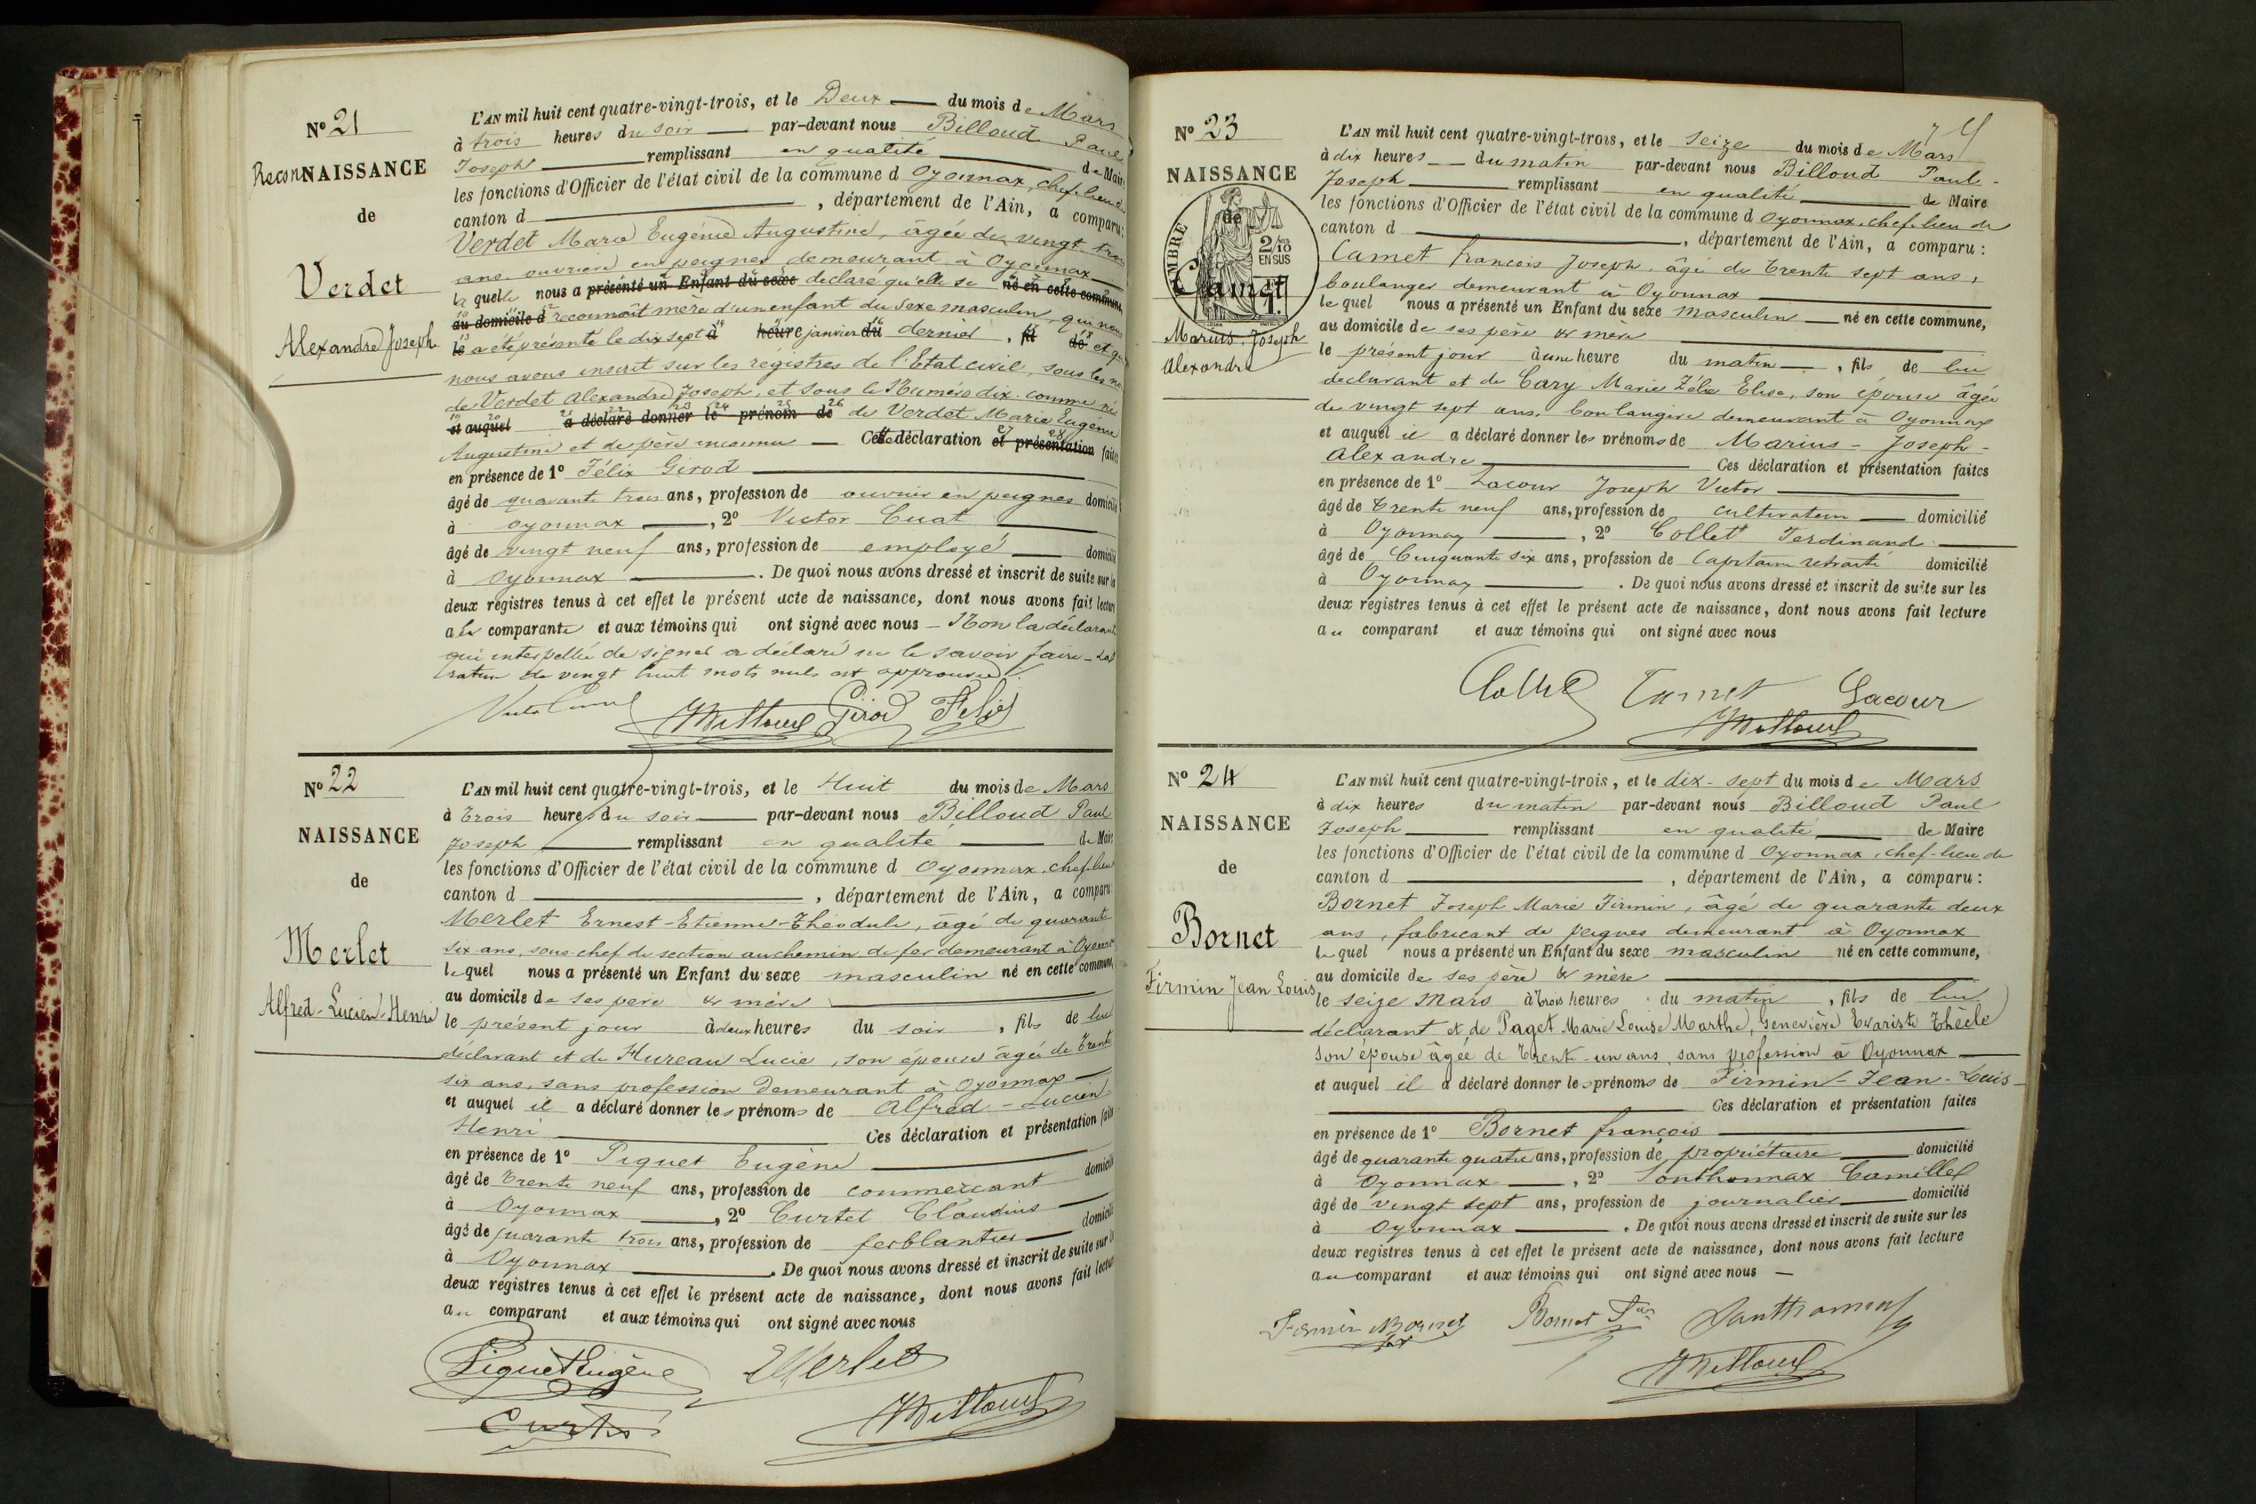 N° 21
ReconNAISSANCE
de
Verdet
Alexandre Joseph
L'AN mil huit cent quatre-vingt-trois, et le Deux du mois de Mars
à trois heures du soir par-devant nous Billoud Paul
Joseph remplissant en qualité de Maire
les fonctions d'Officier de l'état civil de la commune d Oyonnax, chef-lieu de
canton d , département de l'Ain, a comparu:
Verdet Marie Eugénie Augustine, âgée de vingt trois
ans ouvrière en peignes demeurant à Oyonnax
laquelle nous a présenté un Enfant du sexe déclaré qu'elle se né en cette commune,
au domicile d reconnait mère d'un enfant du sexe masculin, qui nous
le a été présenté le dix sept à heure janvier du dernier, fil de et que
nous avons inscrit sur les registres de l'Etat civil, sous les noms
de Verdet Alexandre Joseph, et sous le Numéro dix comme né
et auquel a déclaré donner le prénom de de Verdet Marie Eugénie
Augustine et de père inconnu Cette déclaration et présentation faites
en présence de 1° Félix Girod
âgé de quarante trois ans, profession de ouvrier en peignes domicilié
à Oyonnax , 2° Victor Cuat
âgé de vingt neuf ans, profession de employé domicilié
à Oyonnax . De quoi nous avons dressé et inscrit de suite sur les
deux registres tenus à cet effet le présent acte de naissance, dont nous avons fait lecture
a la comparante et aux témoins qui ont signé avec nous - Non la déclarante
qui interpellée de signer a déclaré ne le savoir faire
de vingt huit mots nuls est approuvée
Girod Félix
N° 22
NAISSANCE
de
Merlet
Alfred-Lucien-Henri
L'AN mil huit cent quatre-vingt-trois, et le Huit du mois de Mars
à Trois heures du soir par-devant nous Billoud Paul
Joseph remplissant en qualité de Maire
les fonctions d'Officier de l'état civil de la commune d Oyonnax, chef-lieu
canton d , département de l'Ain, a comparu
Merlet Ernest-Etienne-Théodule, âgé de quarante
six ans, sous chef de section au chemin de fer demeurant à Oyonnax
lequel nous a présenté un Enfant du sexe masculin né en cette commune,
au domicile de ses père & mère
le présent jour à deux heures du soir, fils de lui
déclarant et de Hureau Lucie, son épouse âgée de Trente
six ans, sans profession Demeurant à Oyonnax
et auquel il a déclaré donner les prénoms de Alfred - Lucien
Henri Ces déclaration et présentation faites
en présence de 1° Piquet Eugène
âgé de Trente neuf ans, profession de commercant domicilié
à Oyonnax , 2° Curtet Claudius
âgé de quarante trois ans, profession de ferblantier domicilié
à Oyonnax . De quoi nous avons dressé et inscrit de suite sur les
deux registres tenus à cet effet le présent acte de naissance, dont nous avons fait lecture
au comparant et aux témoins qui ont signé avec nous
Piquet Eugène EMerlet
N° 23
NAISSANCE
de
TIMBRE
2/10
EN SUS
Camet
Marius-Joseph
Alexandre
L'AN mil huit cent quatre-vingt-trois, et le seize du mois de Mars
à dix heures du matin par-devant nous Billoud Paul-
Joseph remplissant en qualité de Maire
les fonctions d'Officier de l'état civil de la commune d Oyonnax, chef-lieu de
canton d , département de l'Ain, a comparu:
Camet françois Joseph, âgé de trente sept ans,
boulanger demeurant à Oyonnax
lequel nous a présenté un Enfant du sexe masculin né en cette commune,
au domicile de ses père & mère
le présent jour à une heure du matin, fils de lui
déclarant et de Cary Marie Zélie Elise, son épouse âgée
de vingt sept ans, boulangère demeurant à Oyonnax
et auquel il a déclaré donner les prénoms de Marius - Joseph -
Alexandre Ces déclaration et présentation faites
en présence de 1° Lacour Joseph Victor
âgé de trente neuf ans, profession de cultivateur domicilié
à Oyonnax , 2° Collet Ferdinand
âgé de Cinquante six ans, profession de Capitaine retraité domicilié
à Oyonnax . De quoi nous avons dressé et inscrit de suite sur les
deux registres tenus à cet effet le présent acte de naissance, dont nous avons fait lecture
au comparant et aux témoins qui ont signé avec nous
Collet Camet Lacour
N° 24
NAISSANCE
de
Bornet
Firmin Jean Louis
L'AN mil huit cent quatre-vingt-trois, et le dix-sept du mois de Mars
à dix heures du matin par-devant nous Billoud Paul
Joseph remplissant en qualité de Maire
les fonctions d'Officier de l'état civil de la commune d Oyonnax, chef-lieu de
canton d , département de l'Ain, a comparu:
Bornet Joseph Marie Firmin, âgé de quarante deux
ans, fabricant de peignes demeurant à Oyonnax
lequel nous a présenté un Enfant du sexe masculin né en cette commune,
au domicile de ses père & mère
le seize Mars à trois heures du matin, fils de lui
déclarant et de Paget Marie Louise Marthe, Geneviève Evariste Thècle
son épouse âgée de trente-un ans sans profession à Oyonnax
et auquel il a déclaré donner les prénoms de Firmin-Jean-Louis-
Ces déclaration et présentation faites
en présence de 1° Bornet françois
âgé de quarante quatre ans, profession de propriétaire domicilié
à Oyonnax , 2° Sonthonnax Camille
âgé de vingt sept ans, profession de journalier domicilié
à Oyonnax . De quoi nous avons dressé et inscrit de suite sur les
deux registres tenus à cet effet le présent acte de naissance, dont nous avons fait lecture
au comparant et aux témoins qui ont signé avec nous —
Firmin Bornet Bornet Fçois Santhonnax